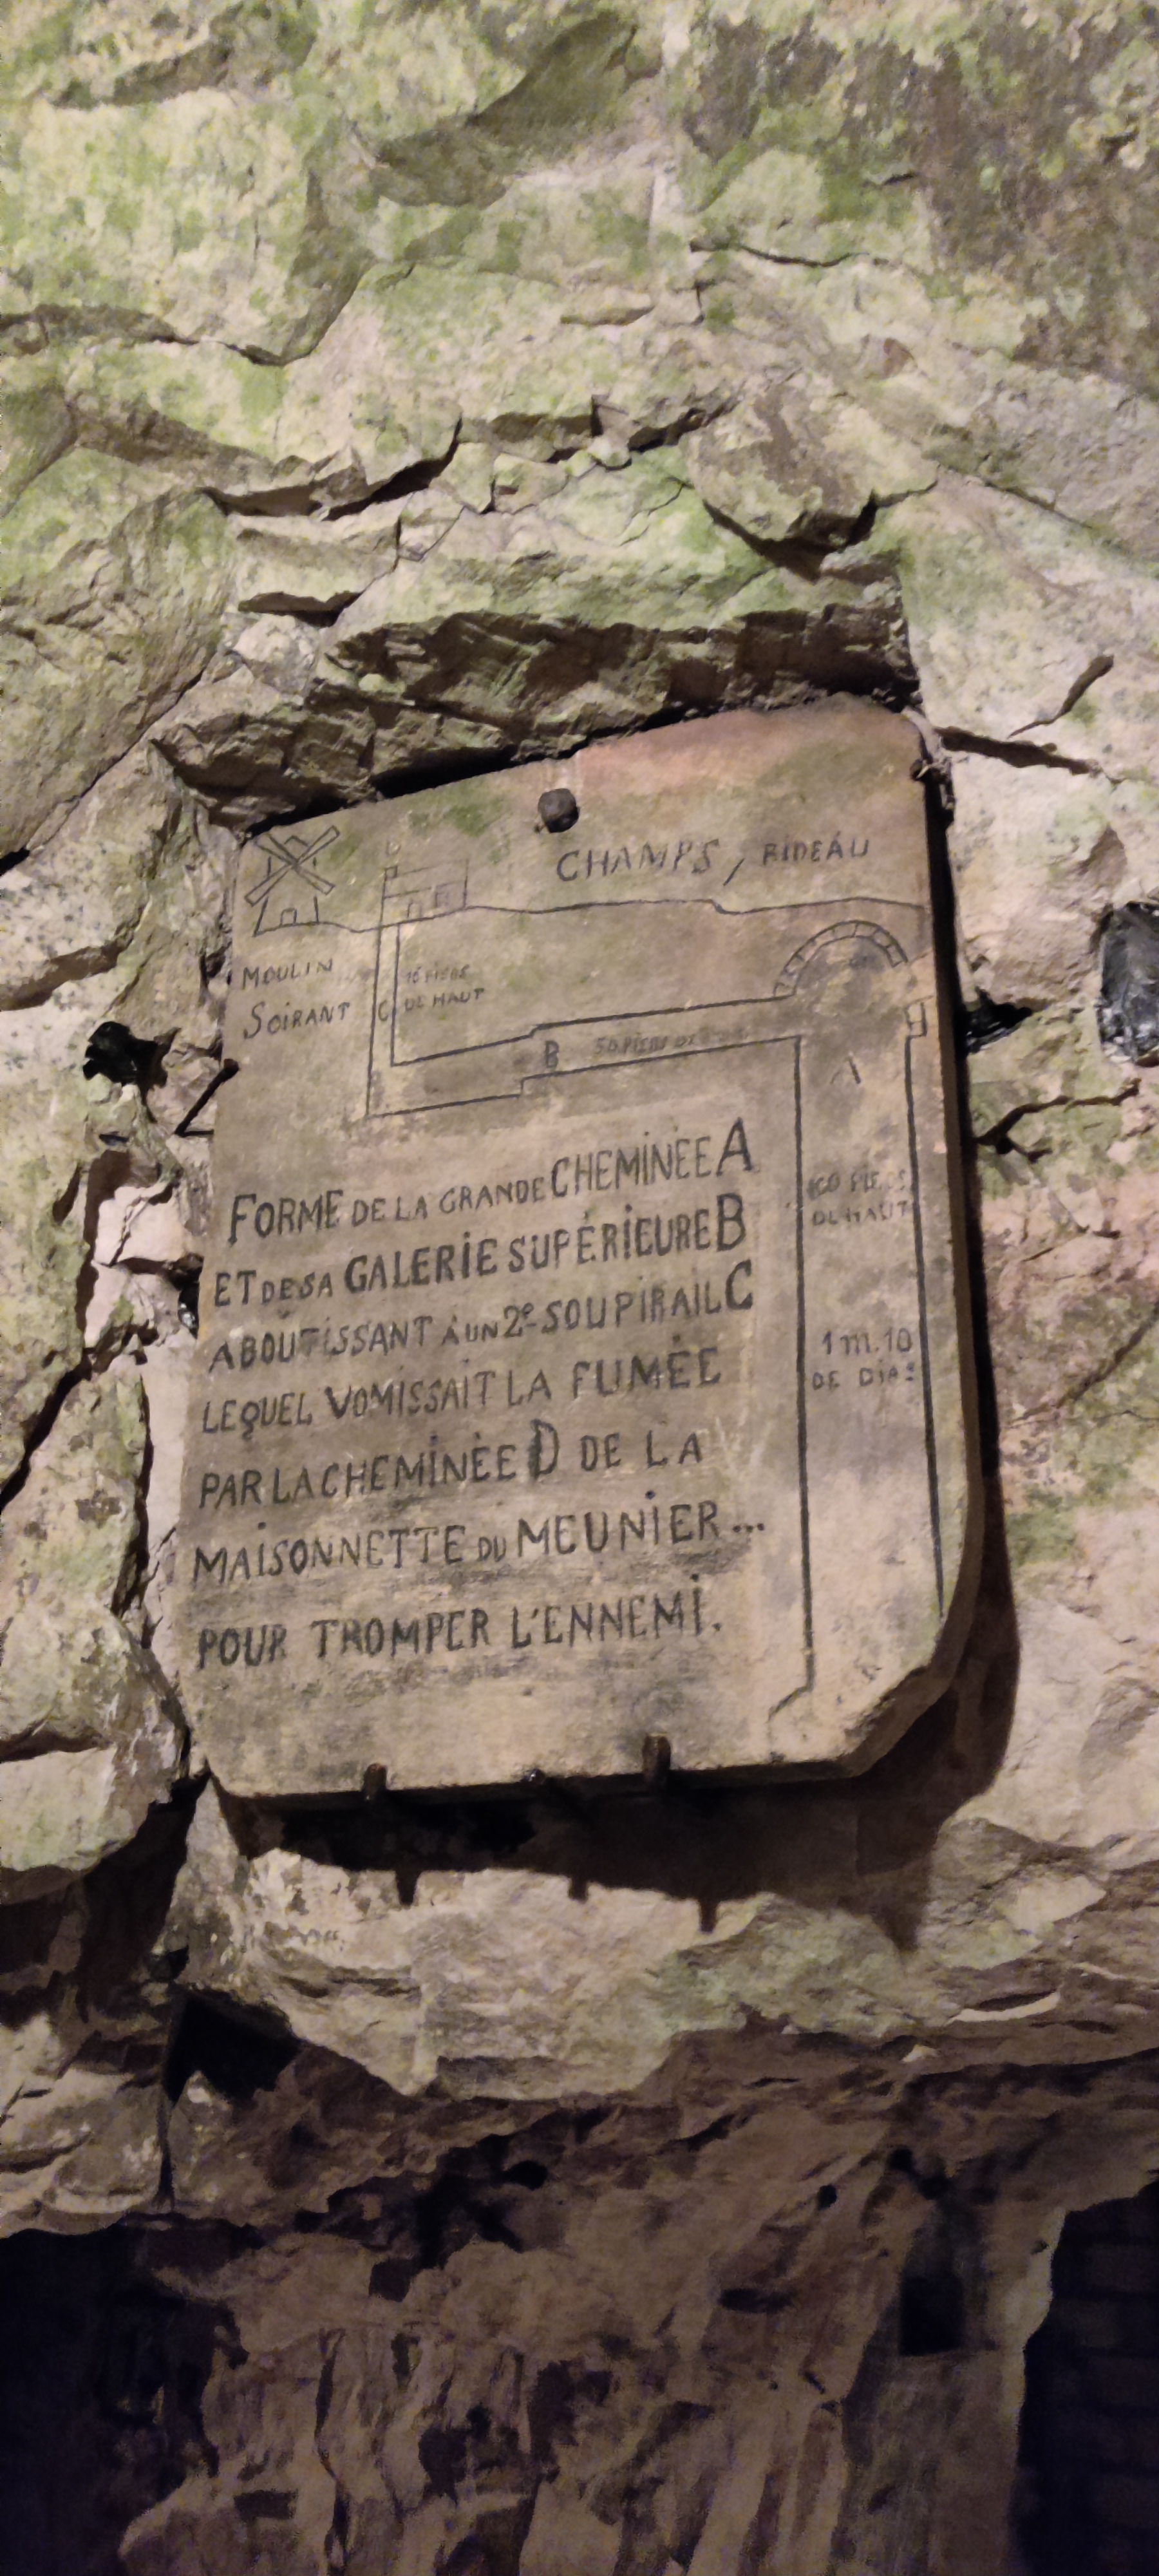 CHAMPS, RIDEAU
MOULIN
SOIRANT
C
16 PIEDS
DE HAUT
B
50 PIEDS DE
A
FORME DE LA GRANDE CHEMINÉE A
ET DE SA GALERIE SUPÉRIEURE B
ABOUTISSANT À UN 2e SOUPIRAIL C
LEQUEL VOMISSAIT LA FUMÉE
PAR LA CHEMINÉE D DE LA
MAISONNETTE DU MEUNIER...
POUR TROMPER L'ENNEMI.
PIEDS
DE HAUT
1 m. 10
DE DIAE